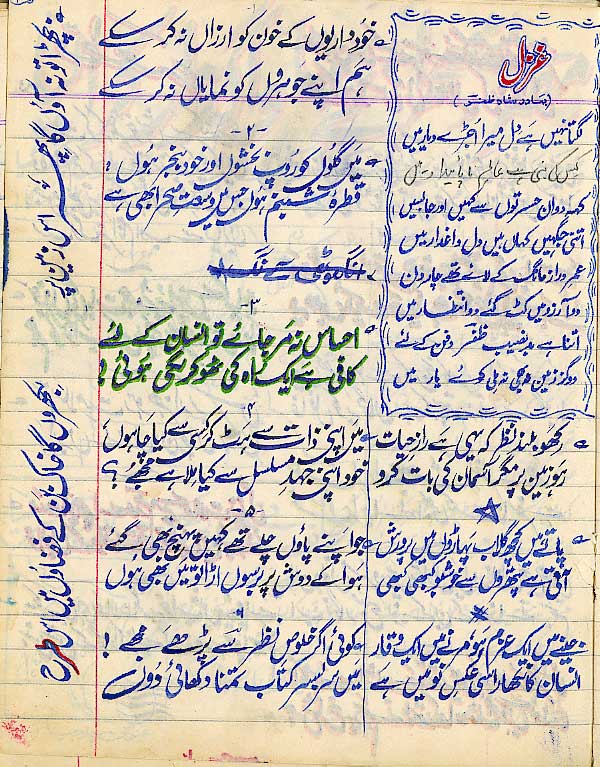 غزل
(بہادر شاہ ظفر)
لگتا نہیں ہے دل میرا اجڑے دیار میں
کس کی بنی ہے عالم ناپائیدار میں
کہہ دو ان حسرتوں سے کہیں اور جا بسیں
اتنی جگہ کہاں ہیں دل داغدار میں
عمر دراز مانگ کے لائے تھے چار دن
دو آرزو میں کٹ گئے دو انتظار میں
اتنا ہے بدنصیب ظفر دفن کے لئے
دو گز زمین بھی نہ ملی کوئے یار میں
۱
خود داریوں کے خون کو ارزاں نہ کر سکے
ہم اپنے جوہروں کو نمایاں نہ کر سکے
-۲-
میں گلوں کو روپ بخشوں اور خود بنجر ہوں!
قطرہ شبنم ہوں جس میں وسعت صحرا بھی ہے
-۳-
احساس نہ مر جائے تو انسان کے لئے
کافی ہے ایک راہ کی ٹھوکر لگی ہوئی!
۴
رکھو بلند نظر کہ یہی ہے راز حیات
رہو زمین پر مگر آسمان کی بات کرو
میں اپنی ذات سے ہٹ کر کسی سے کیا چاہوں
خود اپنی جہد مسلسل سے کیا ملا ہے مجھے؟
-۵-
پاتے ہیں کچھ گلاب پہاڑوں میں پرورش
آتی ہے پتھروں سے خوشبو کبھی کبھی
جو اپنے پاؤں چلے تھے کہیں پہنچ بھی گئے
ہوا کے دوش پر برسوں اڑا تو میں بھی ہوں
۶
جینے میں ایک عزم ہو مرنے میں ایک وقار
انسان کا نکھار اسی عکس نو میں ہے
کوئی اگر خلوص نظر سے پڑھے مجھے!
میں سر بسر کتاب تمنا دکھائی دوں
بچھڑا تو نہ آؤں گا پھر اس زمین پر
بکھروں گا خاک بن کے فضاؤں میں اس طرح